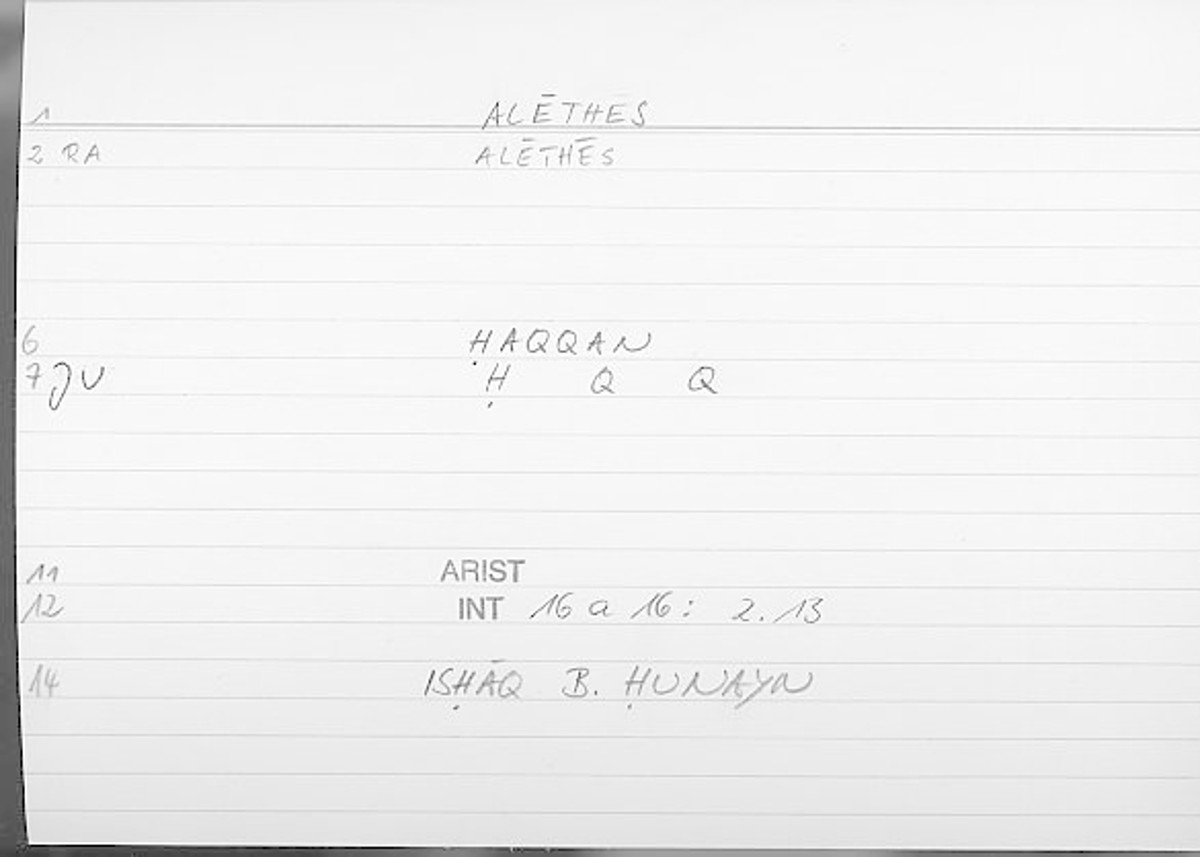 1 ALĒTHES
2 RA ALĒTHĒS
6 ḤAQQAN
7 JU Ḥ Q Q
11 ARIST
12 INT 16 a 16: 2.13
14 ISḤĀQ B. ḤUNAYN